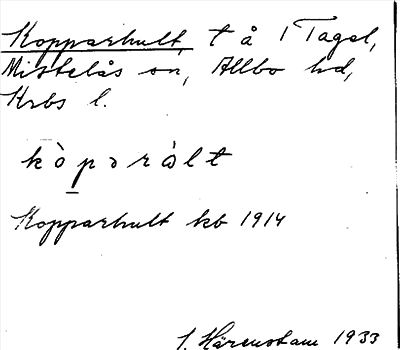 Kopparhult, t å 1 Tagel,
Mistelås sn, Allbo hd,
Krbs l.
kòpərålt
Kopparhult kb 1914
S. Härenstam 1933